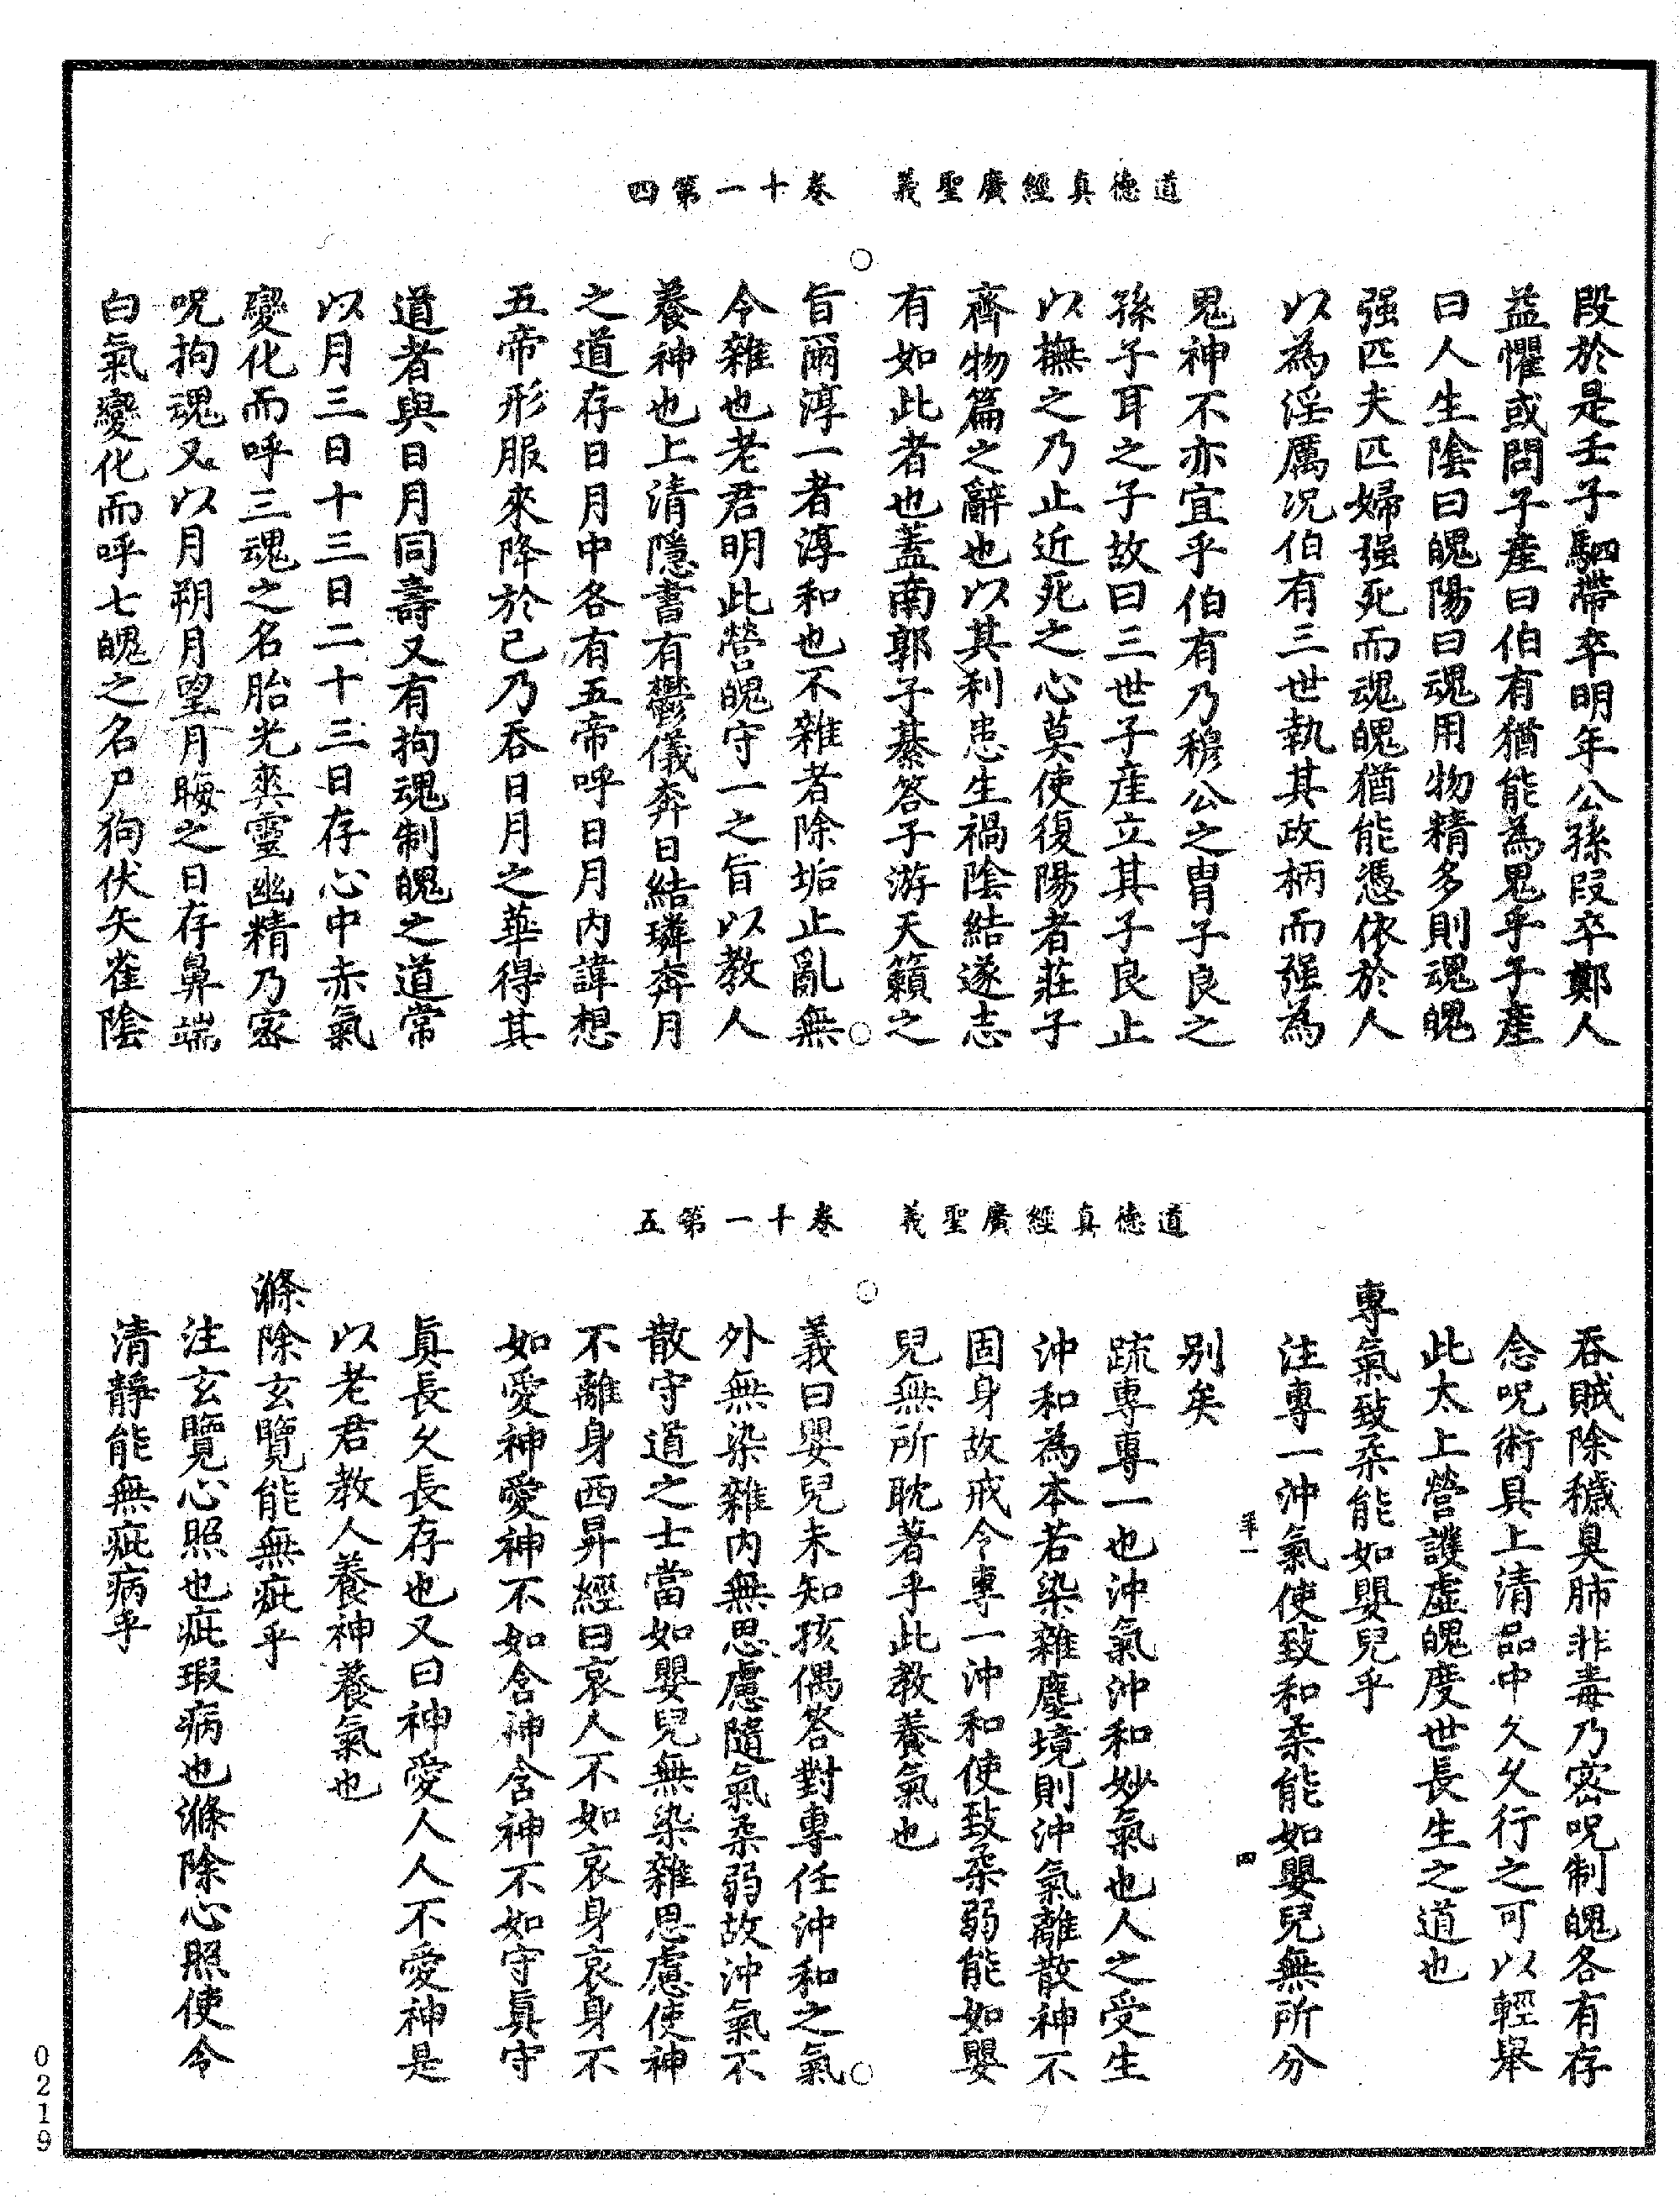 道德真經廣聖義　卷十一第四
段於是壬子駟帶卒明年公孫段卒鄭人
益懼或問子產曰伯有猶能為鬼乎子產
曰人生陰曰魄陽曰魂用物精多則魂魄
强匹夫匹婦强死而魂魄猶能憑依於人
以為淫厲况伯有三世執其政柄而强為
鬼神不亦宜乎伯有乃穆公之胄子良之
孫子耳之子故曰三世子產立其子良止
以撫之乃止近死之心莫使復陽者莊子
齊物篇之辭也以其利患生禍陰結遂志
有如此者也蓋南郭子綦答子游天籟之
旨爾淳一者淳和也不雜者除垢止亂無
令雜也老君明此營魄守一之旨以教人
養神也上清隱書有鬱儀奔日結璘奔月
之道存日月中各有五帝呼日月內諱想
五帝形服來降於己乃吞日月之華得其
道者與日月同壽又有拘魂制魄之道常
以月三日十三日二十三日存心中赤氣
變化而呼三魂之名胎光爽靈幽精乃密
呪拘魂又以月朔月望月晦之日存鼻端
白氣變化而呼七魄之名尸狗伏矢雀陰
道德真經廣聖義　卷十一第五
吞賊除穢臭肺非毒乃密呪制魄各有存
念呪術具上清品中久久行之可以輕舉
此太上營護虛魄度世長生之道也
專氣致柔能如嬰兒乎
注專一沖氣使致和柔能如嬰兒無所分
四
別矣
疏專專一也沖氣沖和妙氣也人之受生
沖和為本若染雜塵境則沖氣離散神不
固身故戒令專一沖和使致柔弱能如嬰
兒無所耽著乎此教養氣也
義曰嬰兒未知孩偶答對專任沖和之氣
外無染雜內無思慮隨氣柔弱故沖氣不
散守道之士當如嬰兒無染雜思慮使神
不離身西昇經曰哀人不如哀身哀身不
如愛神愛神不如含神含神不如守眞守
眞長久長存也又曰神愛人人不愛神是
以老君教人養神養氣也
滌除玄覽能無疵乎
注玄覽心照也疵瑕病也滌除心照使令
清靜能無疵病乎
0219